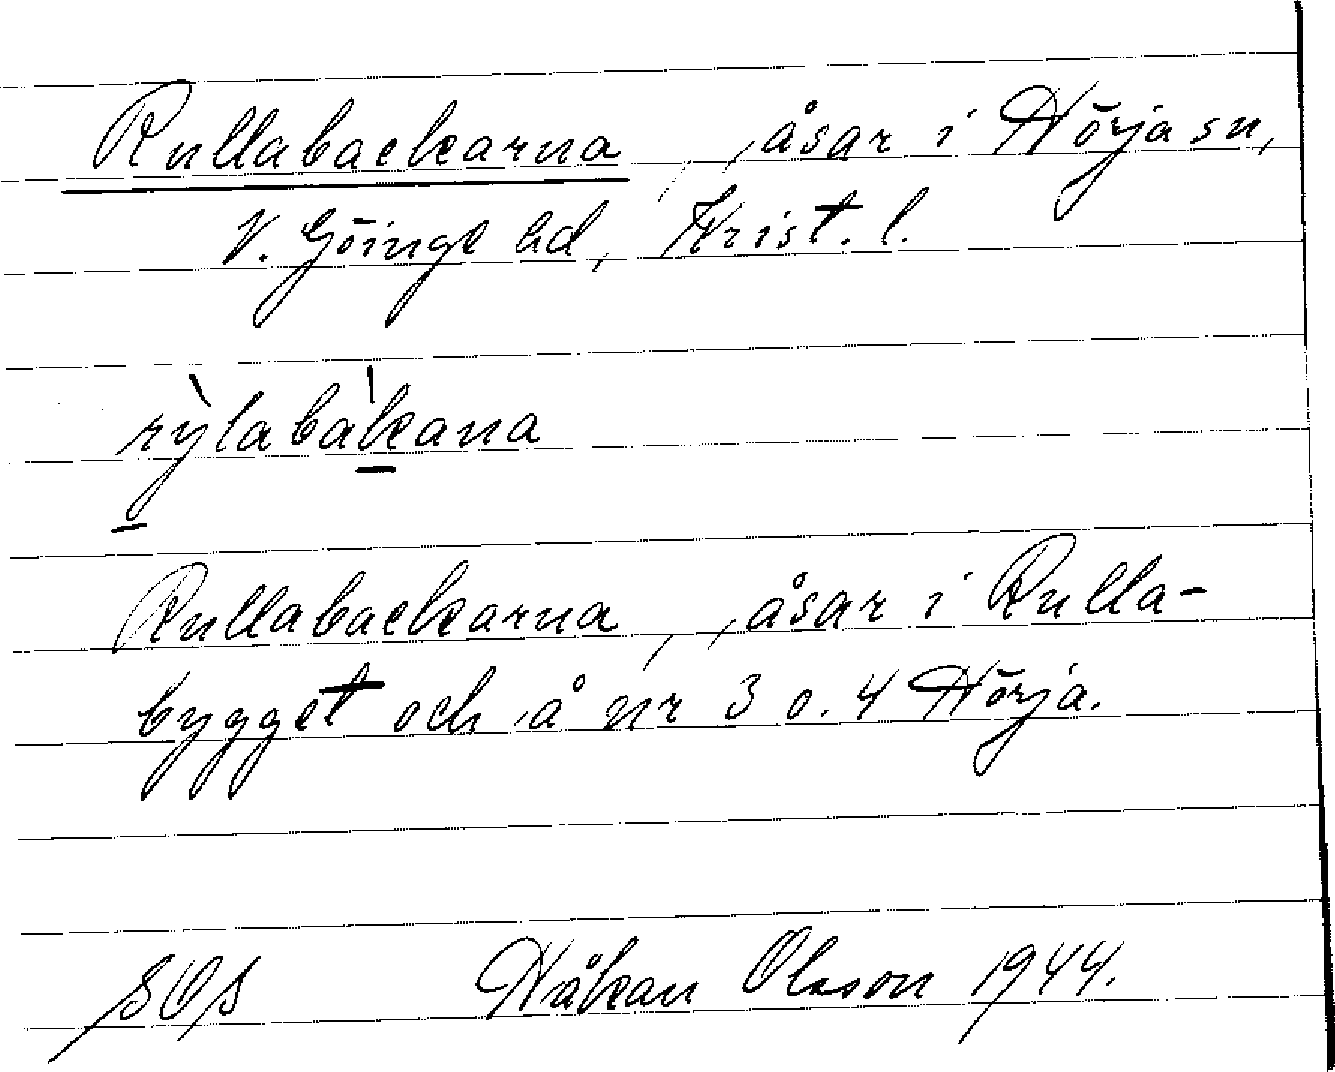 Rullabackarna, åsar i Hörja sn,
V. Göinge hd, Krist. l.
rỳlabàkana
Rullabackarna, åsar i Rulla-
bygget och å nr 3 o. 4 Hörja.
SOS Håkan Olsson 1944.